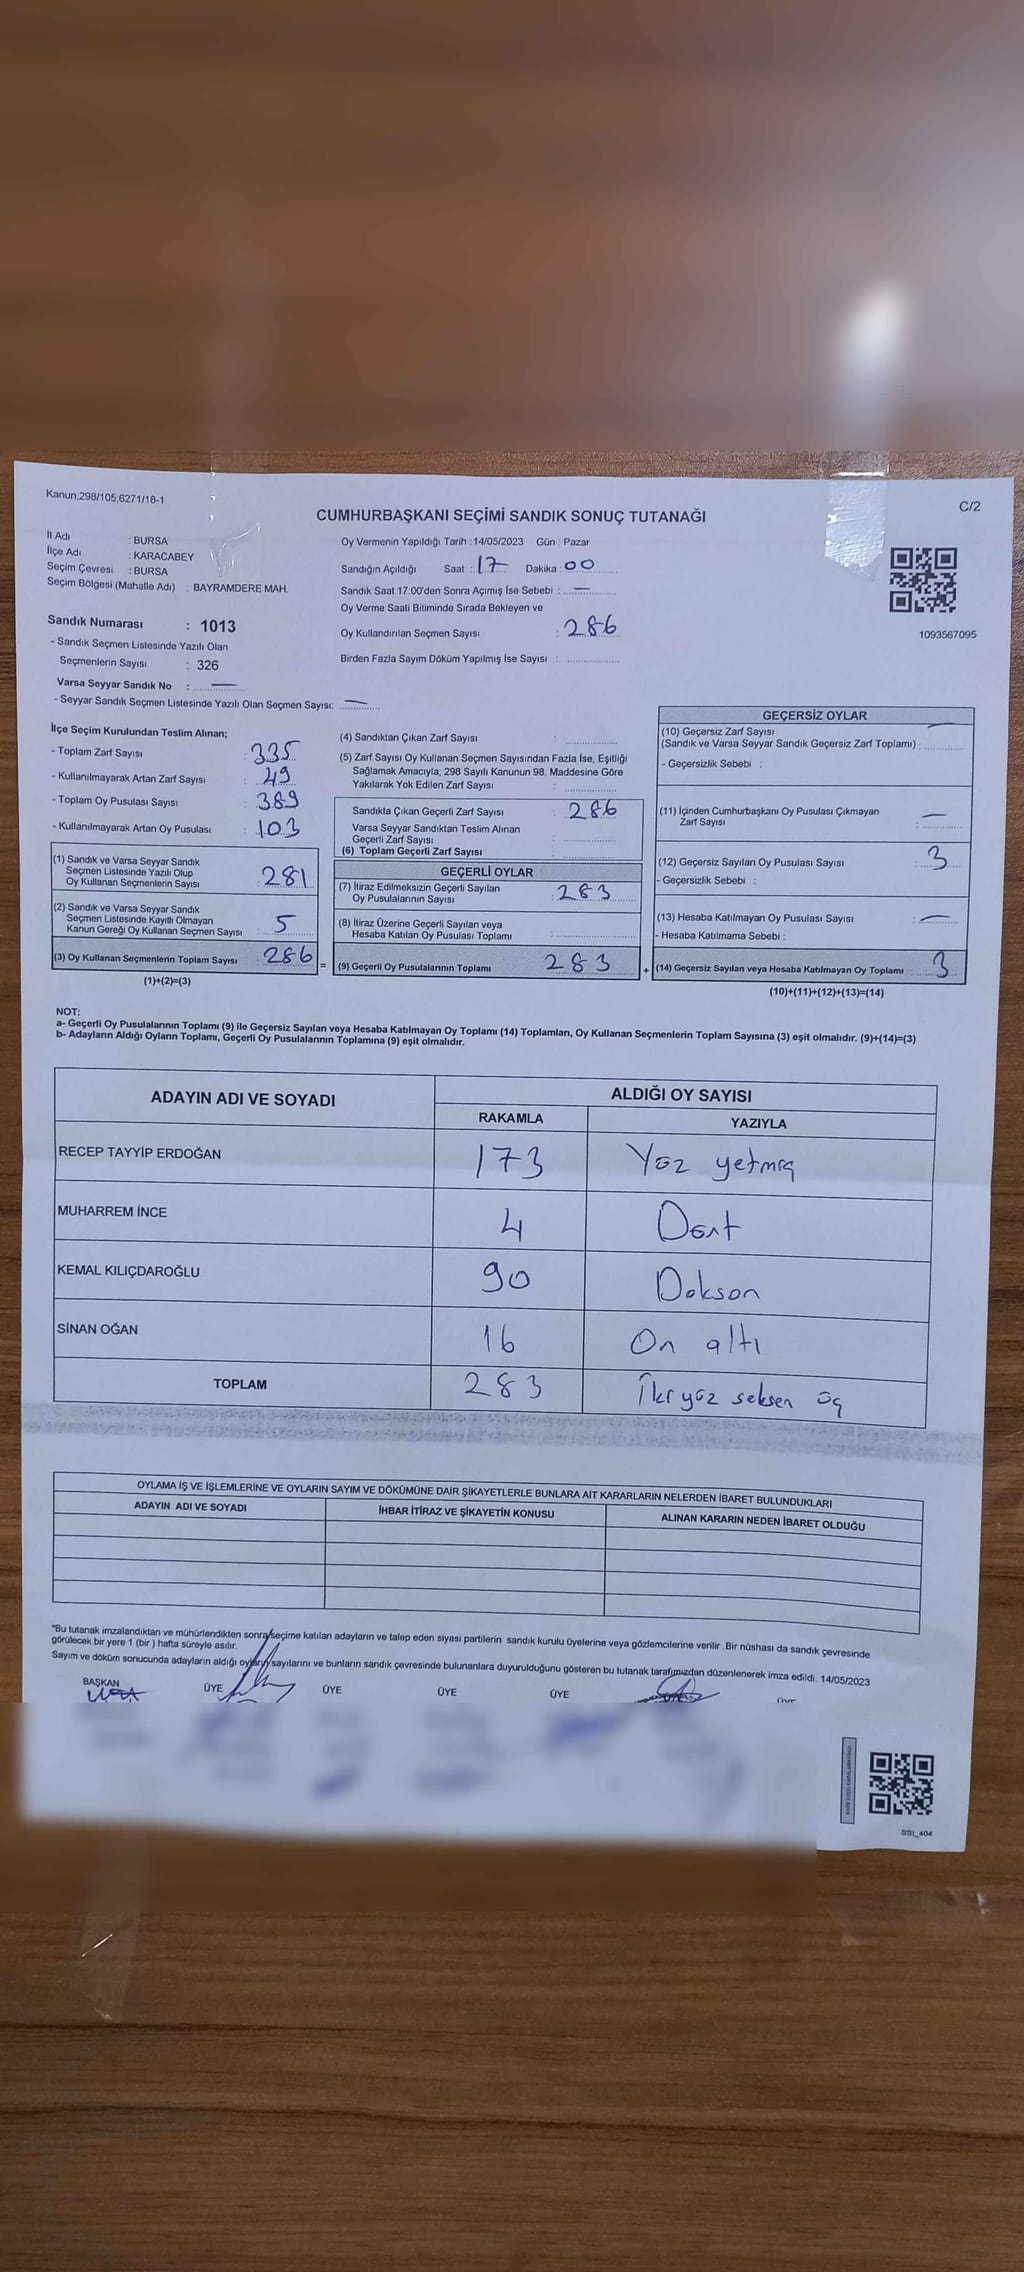 Kanun;298/105,6271/18-1
C/2
CUMHURBAŞKANI SEÇİMİ SANDIK SONUÇ TUTANAĞI
İl Adı : BURSA
İlçe Adı : KARACABEY
Seçim Çevresi : BURSA
Seçim Bölgesi (Mahalle Adı) : BAYRAMDERE MAH.
Oy Vermenin Yapıldığı Tarih : 14/05/2023 Gün : Pazar
Sandığın Açıldığı Saat : 17 Dakika : 00
Sandık Saat 17:00'den Sonra Açımış İse Sebebi : —
Oy Verme Saati Bitiminde Sırada Bekleyen ve
Oy Kullandırılan Seçmen Sayısı : 286
Birden Fazla Sayım Döküm Yapılmış İse Sayısı :
1093567095
Sandık Numarası : 1013
- Sandık Seçmen Listesinde Yazılı Olan
Seçmenlerin Sayısı : 326
Varsa Seyyar Sandık No : —
- Seyyar Sandık Seçmen Listesinde Yazılı Olan Seçmen Sayısı: —
İlçe Seçim Kurulundan Teslim Alınan;
- Toplam Zarf Sayısı : 335
- Kullanılmayarak Artan Zarf Sayısı : 49
- Toplam Oy Pusulası Sayısı : 389
- Kullanılmayarak Artan Oy Pusulası : 103
(1) Sandık ve Varsa Seyyar Sandık
Seçmen Listesinde Yazılı Olup
Oy Kullanan Seçmenlerin Sayısı : 281
(2) Sandık ve Varsa Seyyar Sandık
Seçmen Listesinde Kayıtlı Olmayan
Kanun Gereği Oy Kullanan Seçmen Sayısı : 5
(3) Oy Kullanan Seçmenlerin Toplam Sayısı : 286 =
(1)+(2)=(3)
(4) Sandıktan Çıkan Zarf Sayısı :
(5) Zarf Sayısı Oy Kullanan Seçmen Sayısından Fazla İse, Eşitliği
Sağlamak Amacıyla, 298 Sayılı Kanunun 98. Maddesine Göre
Yakılarak Yok Edilen Zarf Sayısı :
Sandıkta Çıkan Geçerli Zarf Sayısı : 286
Varsa Seyyar Sandıktan Teslim Alınan
Geçerli Zarf Sayısı :
(6) Toplam Geçerli Zarf Sayısı :
GEÇERLİ OYLAR
(7) İtiraz Edilmeksizin Geçerli Sayılan
Oy Pusulalarının Sayısı : 283
(8) İtiraz Üzerine Geçerli Sayılan veya
Hesaba Katılan Oy Pusulası Toplamı :
(9) Geçerli Oy Pusulalarının Toplamı 283 +
GEÇERSİZ OYLAR
(10) Geçersiz Zarf Sayısı —
(Sandık ve Varsa Seyyar Sandık Geçersiz Zarf Toplamı) :
- Geçersizlik Sebebi :
(11) İçinden Cumhurbaşkanı Oy Pusulası Çıkmayan
Zarf Sayısı : —
(12) Geçersiz Sayılan Oy Pusulası Sayısı : 3
- Geçersizlik Sebebi :
(13) Hesaba Katılmayan Oy Pusulası Sayısı : —
- Hesaba Katılmama Sebebi :
(14) Geçersiz Sayılan veya Hesaba Katılmayan Oy Toplamı : 3
(10)+(11)+(12)+(13)=(14)
NOT:
a- Geçerli Oy Pusulalarının Toplamı (9) ile Geçersiz Sayılan veya Hesaba Katılmayan Oy Toplamı (14) Toplamları, Oy Kullanan Seçmenlerin Toplam Sayısına (3) eşit olmalıdır. (9)+(14)=(3)
b- Adayların Aldığı Oyların Toplamı, Geçerli Oy Pusulalarının Toplamına (9) eşit olmalıdır.
ADAYIN ADI VE SOYADI ALDIĞI OY SAYISI
RAKAMLA YAZIYLA
RECEP TAYYİP ERDOĞAN 173 Yüz yetmiş
MUHARREM İNCE 4 Dört
KEMAL KILIÇDAROĞLU 90 Doksan
SİNAN OĞAN 16 On altı
TOPLAM 283 İkiyüz seksen üç
OYLAMA İŞ VE İŞLEMLERİNE VE OYLARIN SAYIM VE DÖKÜMÜNE DAİR ŞİKAYETLERLE BUNLARA AİT KARARLARIN NELERDEN İBARET BULUNDUKLARI
ADAYIN ADI VE SOYADI İHBAR İTİRAZ VE ŞİKAYETİN KONUSU ALINAN KARARIN NEDEN İBARET OLDUĞU
"Bu tutanak imzalandıktan ve mühürlendikten sonra seçime katılan adayların ve talep eden siyasi partilerin sandık kurulu üyelerine veya gözlemcilerine verilir. Bir nüshası da sandık çevresinde
görülecek bir yere 1 (bir ) hafta süreyle asılır.
Sayım ve döküm sonucunda adayların aldığı oyların sayılarını ve bunların sandık çevresinde bulunanlara duyurulduğunu gösteren bu tutanak tarafımızdan düzenlenerek imza edildi. 14/05/2023
BAŞKAN ÜYE ÜYE ÜYE ÜYE
SSİ_404